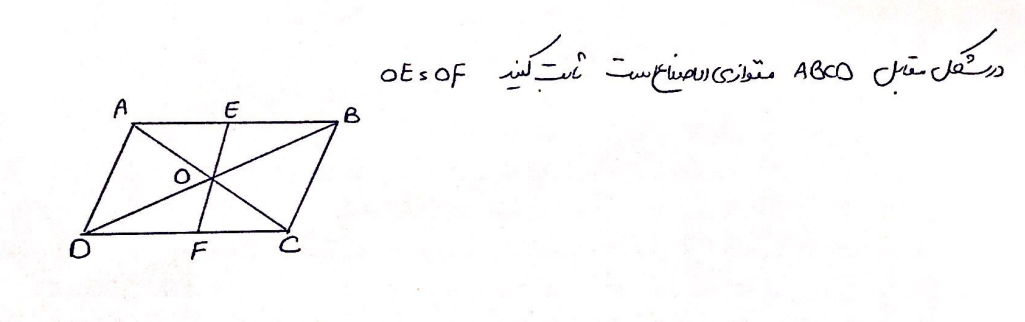 در شکل مقابل ABCD متوازی الاضلاع ست ثابت کنید OE = OF
A E B
O
D F C